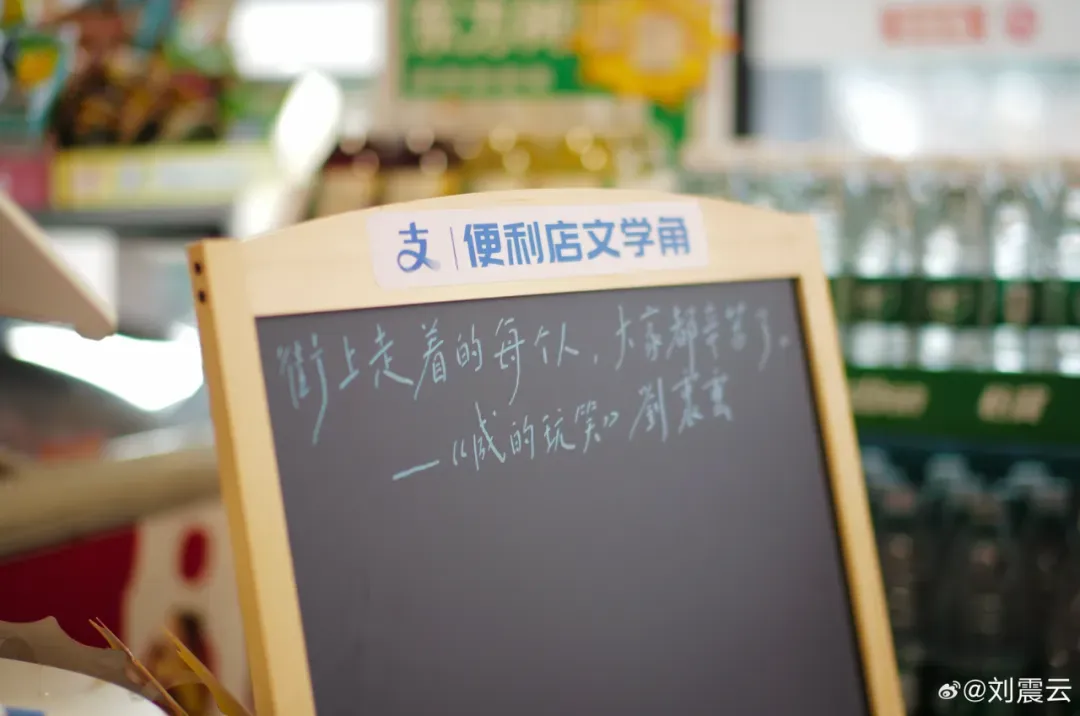 支|便利店文学角
街上走着的每个人，大家都辛苦了。
—《咸的玩笑》劉震雲
@刘震云